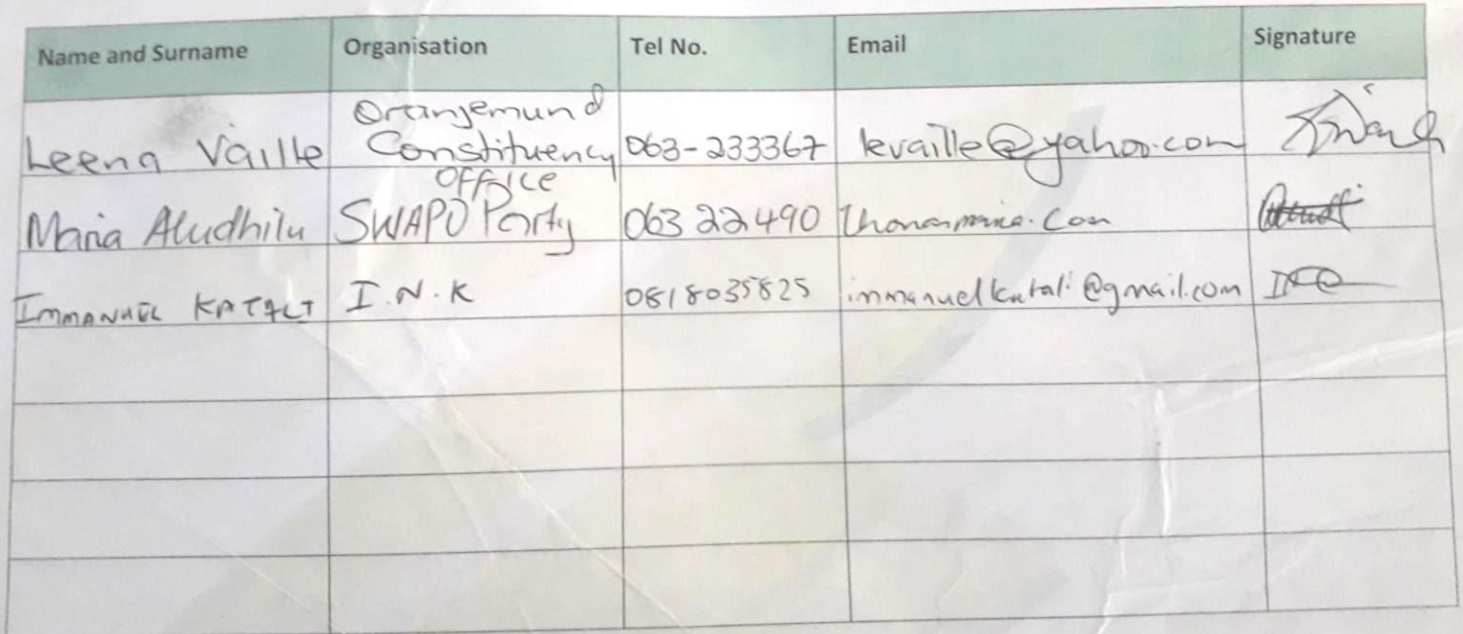 Name and Surname Organisation Tel No. Email Signature
Orangemund
Leena Vaille Constituency 063-233367 levaille@yahoo.com
Office
Maria Aludhilu SWAPO Party 063 22490
Immanuel KATALI I.N.K 0818035825 immanuelkatali@gmail.com